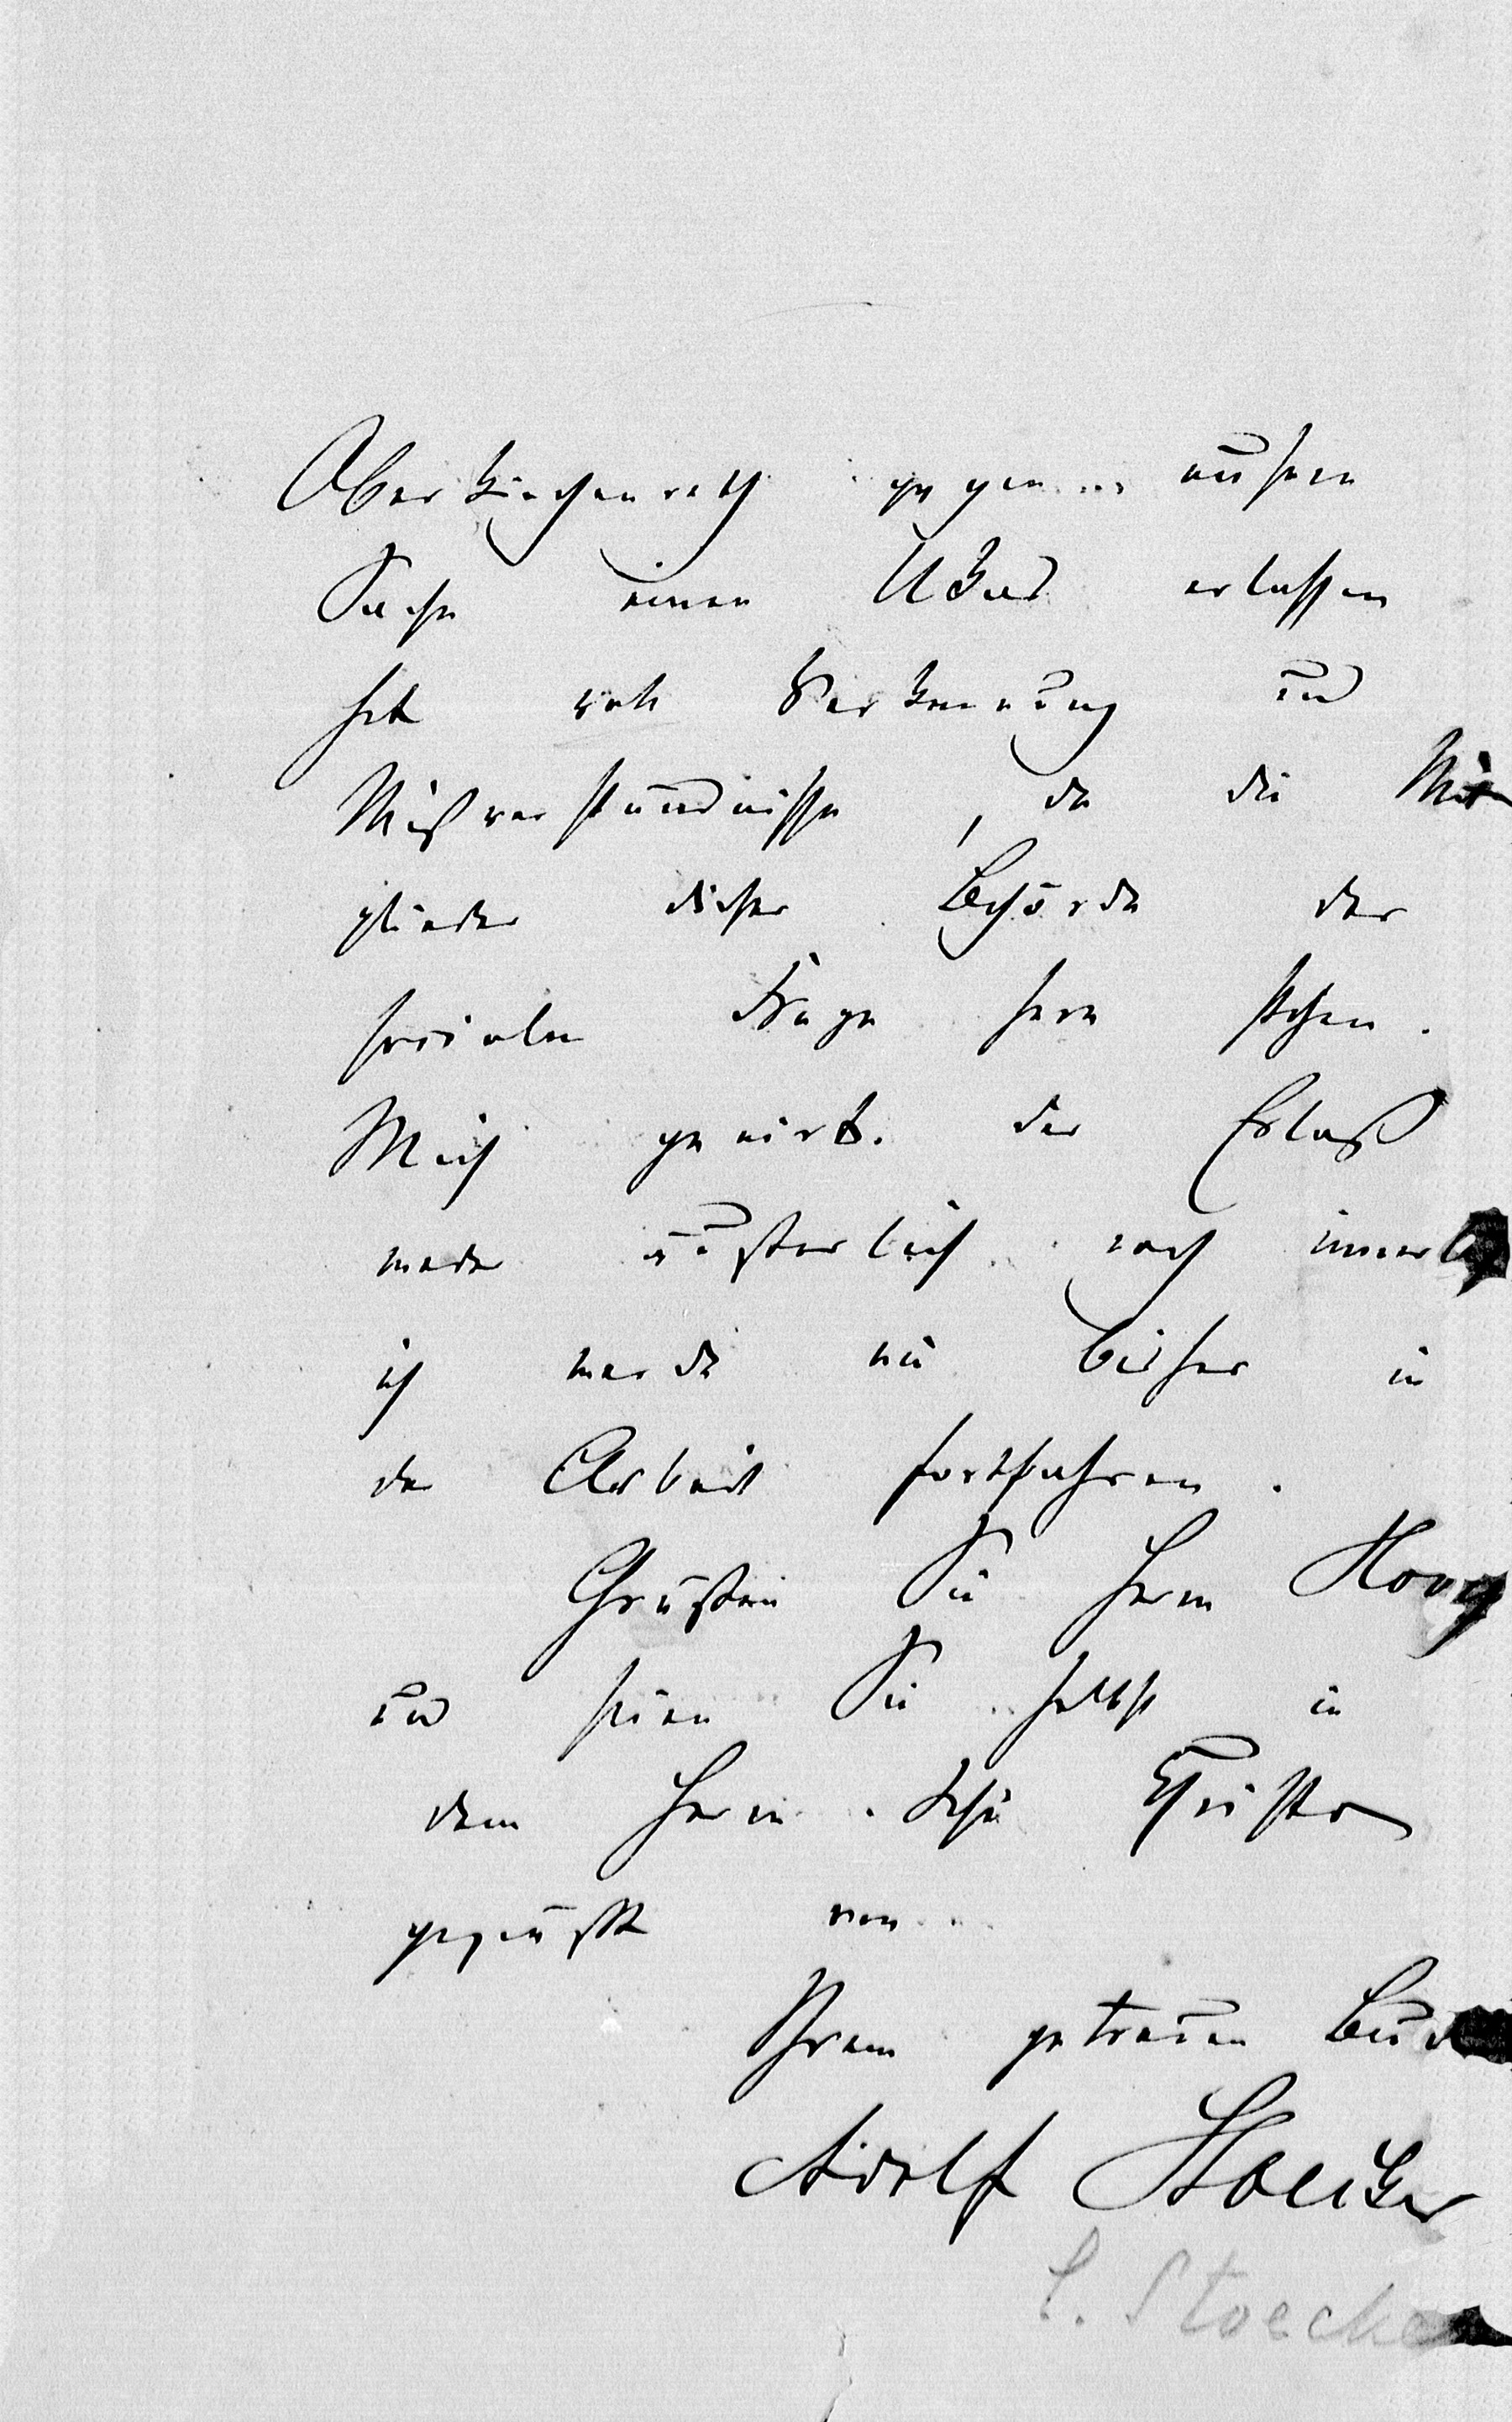 Oberkirchenrath gegen unsere
Sache einen Ukas erlassen
hat voll Verkennung und
Mißverständnisse, da die Mit
glieder dieser Behörde der
socialen Frage fern stehen.
Mich genirt der Erlaß
weder äußerlich noch innerlich
ich werde wie bisher in
der Arbeit fortfahren.
Grüßen Sie Herrn
und seien Sie selbst in
dem Herrn Jesu Christo
gegrüßt von
Ihrem getreuen Bruder
Adolf Stoecker
Stoecker